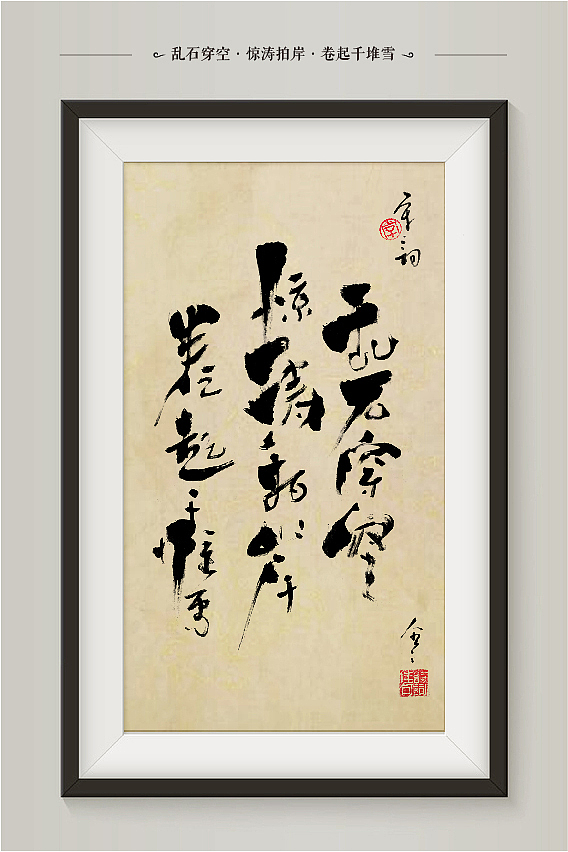 乱石穿空 · 惊涛拍岸 · 卷起千堆雪
宋词
乱石穿空
惊涛拍岸
卷起千堆雪